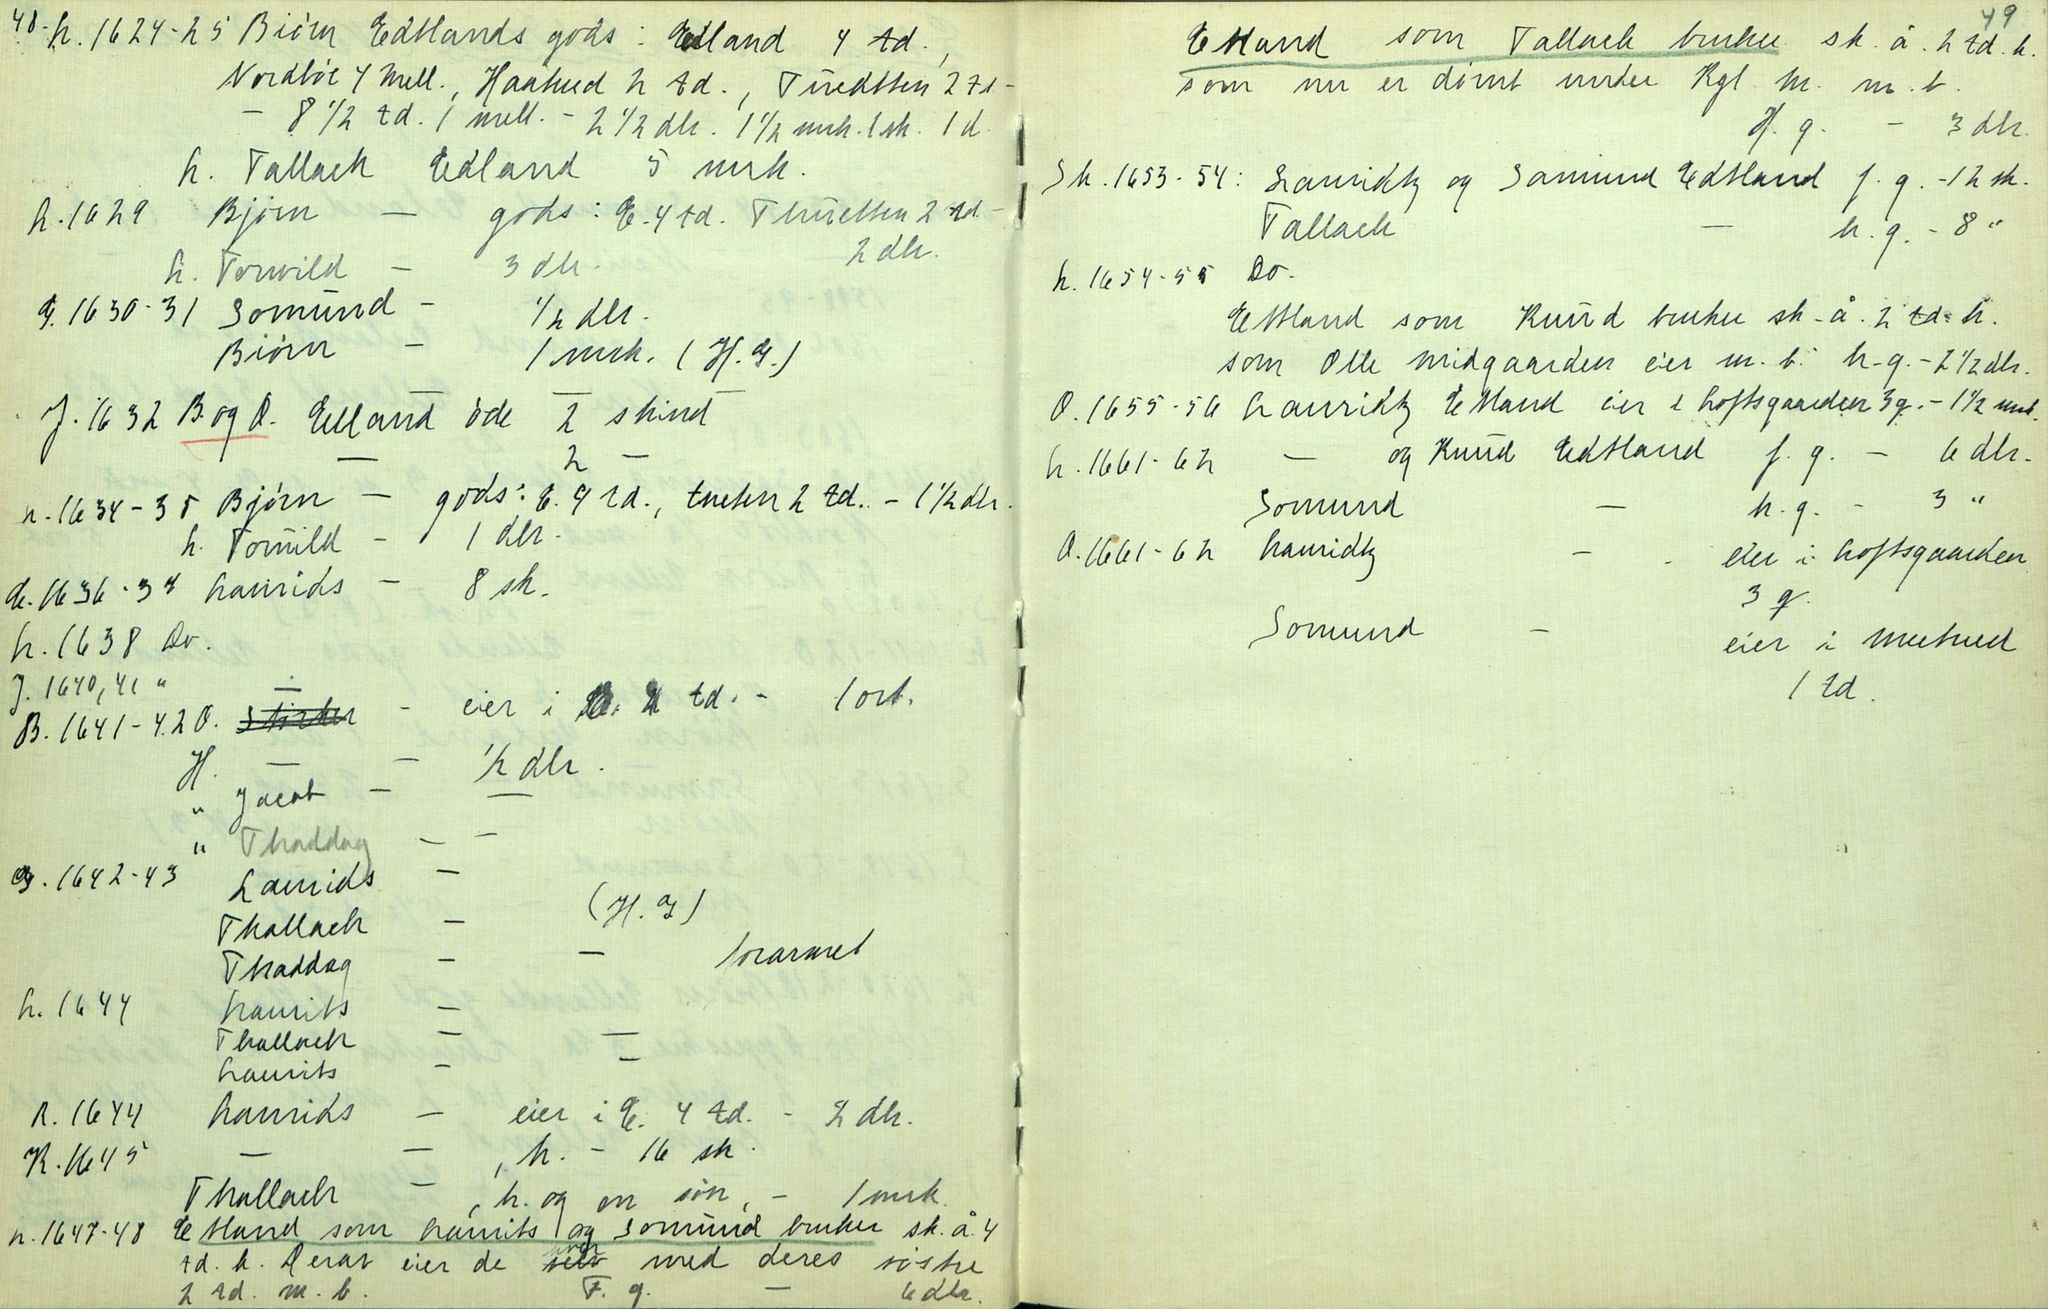 48.
L. 1624-25 Biørn Edtlands gods: Edland 4 td.,
Nordbøe 4 mell., Haahued 2 td., Tuedtten 2 td -
- 8 1/2 td. 1 mell. - 2 1/2 dlr. 1 1/2 mrk. 1 sk. 1 d.
L. Tallack Edland 5 mrk.
L. 1629 Bjørn — gods: E. 4 td. Thuetten 2 td -
2 dlr.
L. Torvild — 3 dlr.
G. 1630-31 Somund — 1/2 dlr.
Biørn — 1 mrk. (H. G.)
J. 1632 B. og O. Etland öde 2 skind
— 2 —
L. 1634-35 Bjørn — gods: E. 4 td., tueten 2 td. - 1 1/2 dlr.
L. Tomild — 1 dlr.
1636-37 Laurids — 8 sk.
L. 1638 Do.
J. 1640, 41 " —
B. 1641-42 O. — eier i 2 td. - 1 ort.
H. — — 1/2 dlr.
" Jacob — —
" Thaddag — —
G. 1642-43 Laurids —
Thallack — (H. G)
Thaddag — — forarmet
L. 1644 Laurits —
Thallack — —
Laurits — —
R. 1644 Laurids — eier i E. 4 td. - 2 dlr.
K. 1645 — — , h. - 16 sk.
Thallack — , h. og en sön, - 1 mrk.
L. 1647-48 Etland som Laurits og Somund bruker sk. å. 4
td. h. Derav eier de med deres söstre
2 td. m. b. F. g. — 6 dlr.
49
Etland som Tallack bruker sk. å. 2 td. h.
som nu er dömt under Kgl. M. m. b.
H. g. - 3 dlr.
Sk. 1653-54: Lauridtz og Somund Edtland f. g. - 12 sk.
Tallack — h. g. - 8 "
L. 1654-55 Do.
Ettland som Knud bruker sk. å. 2 td. h.
som Olle midgaarden eier m. b. h. g. - 2 1/2 dlr.
O. 1655-56 Lauridtz Etland eier i Loftsgaarden 3 g. - 1 1/2 mrk.
L. 1661-62 — og Knud Edtland f. g. — 6 dlr.
Somund — h. g. - 3 "
O. 1661-62 Lauridtz — eier i Loftsgaarden
3 g.
Somund — eier i
1 td.